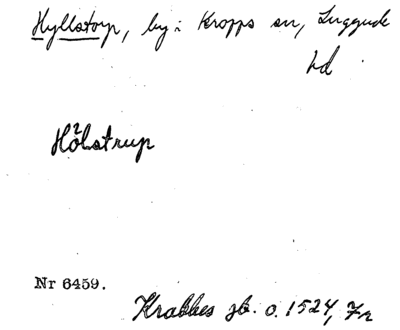 Hyllstorp, by i Kropps sn, Luggude
hd
Hölstrup
Nr 6459.
Krabbes jb. o. 1524, 7r